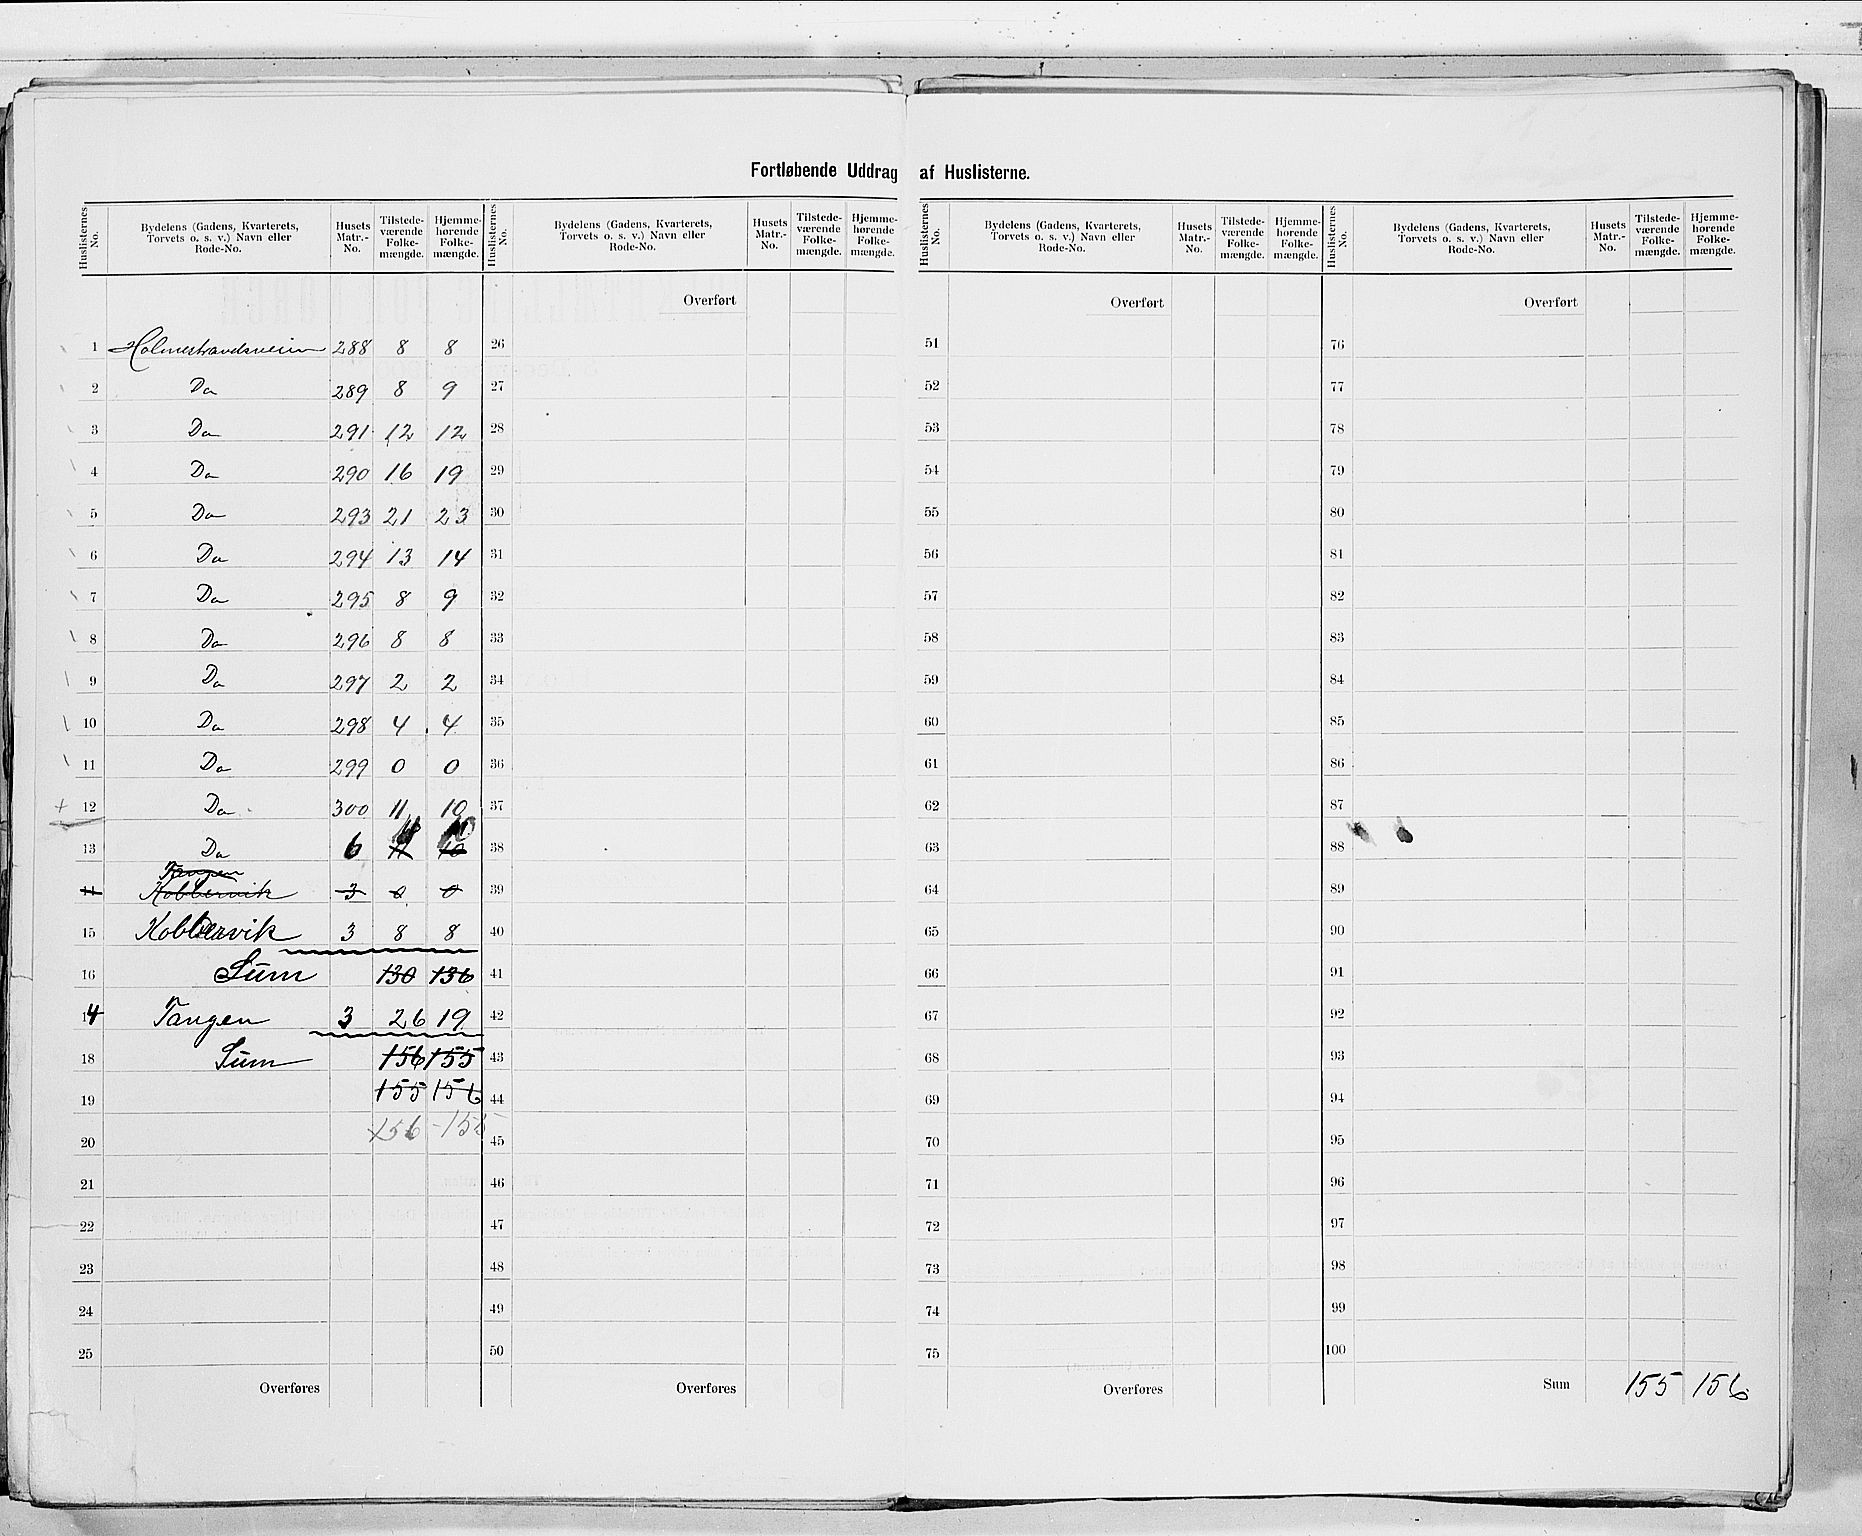 Fortløbende Uddrag af Huslisterne.
Huslisternes No. | Bydelens (Gadens, Kvarterets, Torvets o. s. v.) Navn eller Rode-No. | Husets Matr.-No. | Tilstede-værende Folke-mængde. | Hjemme-hørende Folke-mængde.
1 Holmestrandsveien 288 8 8
2 Do 289 8 9
3 Do 291 12 12
4 Do 290 16 19
5 Do 293 21 23
6 Do 294 13 14
7 Do 295 8 9
8 Do 296 8 8
9 Do 297 2 2
10 Do 298 4 4
11 Do 299 0 0
12 Do 300 11 10
13 Do 6 11 10
Tangen
Kobbervik 3 0 0
15 Kobbervik 3 8 8
16 Sum 130 136
14 Tangen 3 26 19
18 Sum 156 155
19 155 156
20 156 - 155
21
22
23
24
25
Overføres
Huslisternes No. | Bydelens (Gadens, Kvarterets, Torvets o. s. v.) Navn eller Rode-No. | Husets Matr.-No. | Tilstede-værende Folke-mængde. | Hjemme-hørende Folke-mængde.
Overført
26
27
28
29
30
31
32
33
34
35
36
37
38
39
40
41
42
43
44
45
46
47
48
49
50
Overføres
Huslisternes No. | Bydelens (Gadens, Kvarterets, Torvets o. s. v.) Navn eller Rode-No. | Husets Matr.-No. | Tilstede-værende Folke-mængde. | Hjemme-hørende Folke-mængde.
Overført
51
52
53
54
55
56
57
58
59
60
61
62
63
64
65
66
67
68
69
70
71
72
73
74
75
Overføres
Huslisternes No. | Bydelens (Gadens, Kvarterets, Torvets o. s. v.) Navn eller Rode-No. | Husets Matr.-No. | Tilstede-værende Folke-mængde. | Hjemme-hørende Folke-mængde.
Overført
76
77
78
79
80
81
82
83
84
85
86
87
88
89
90
91
92
93
94
95
96
97
98
99
100
Sum 155 156